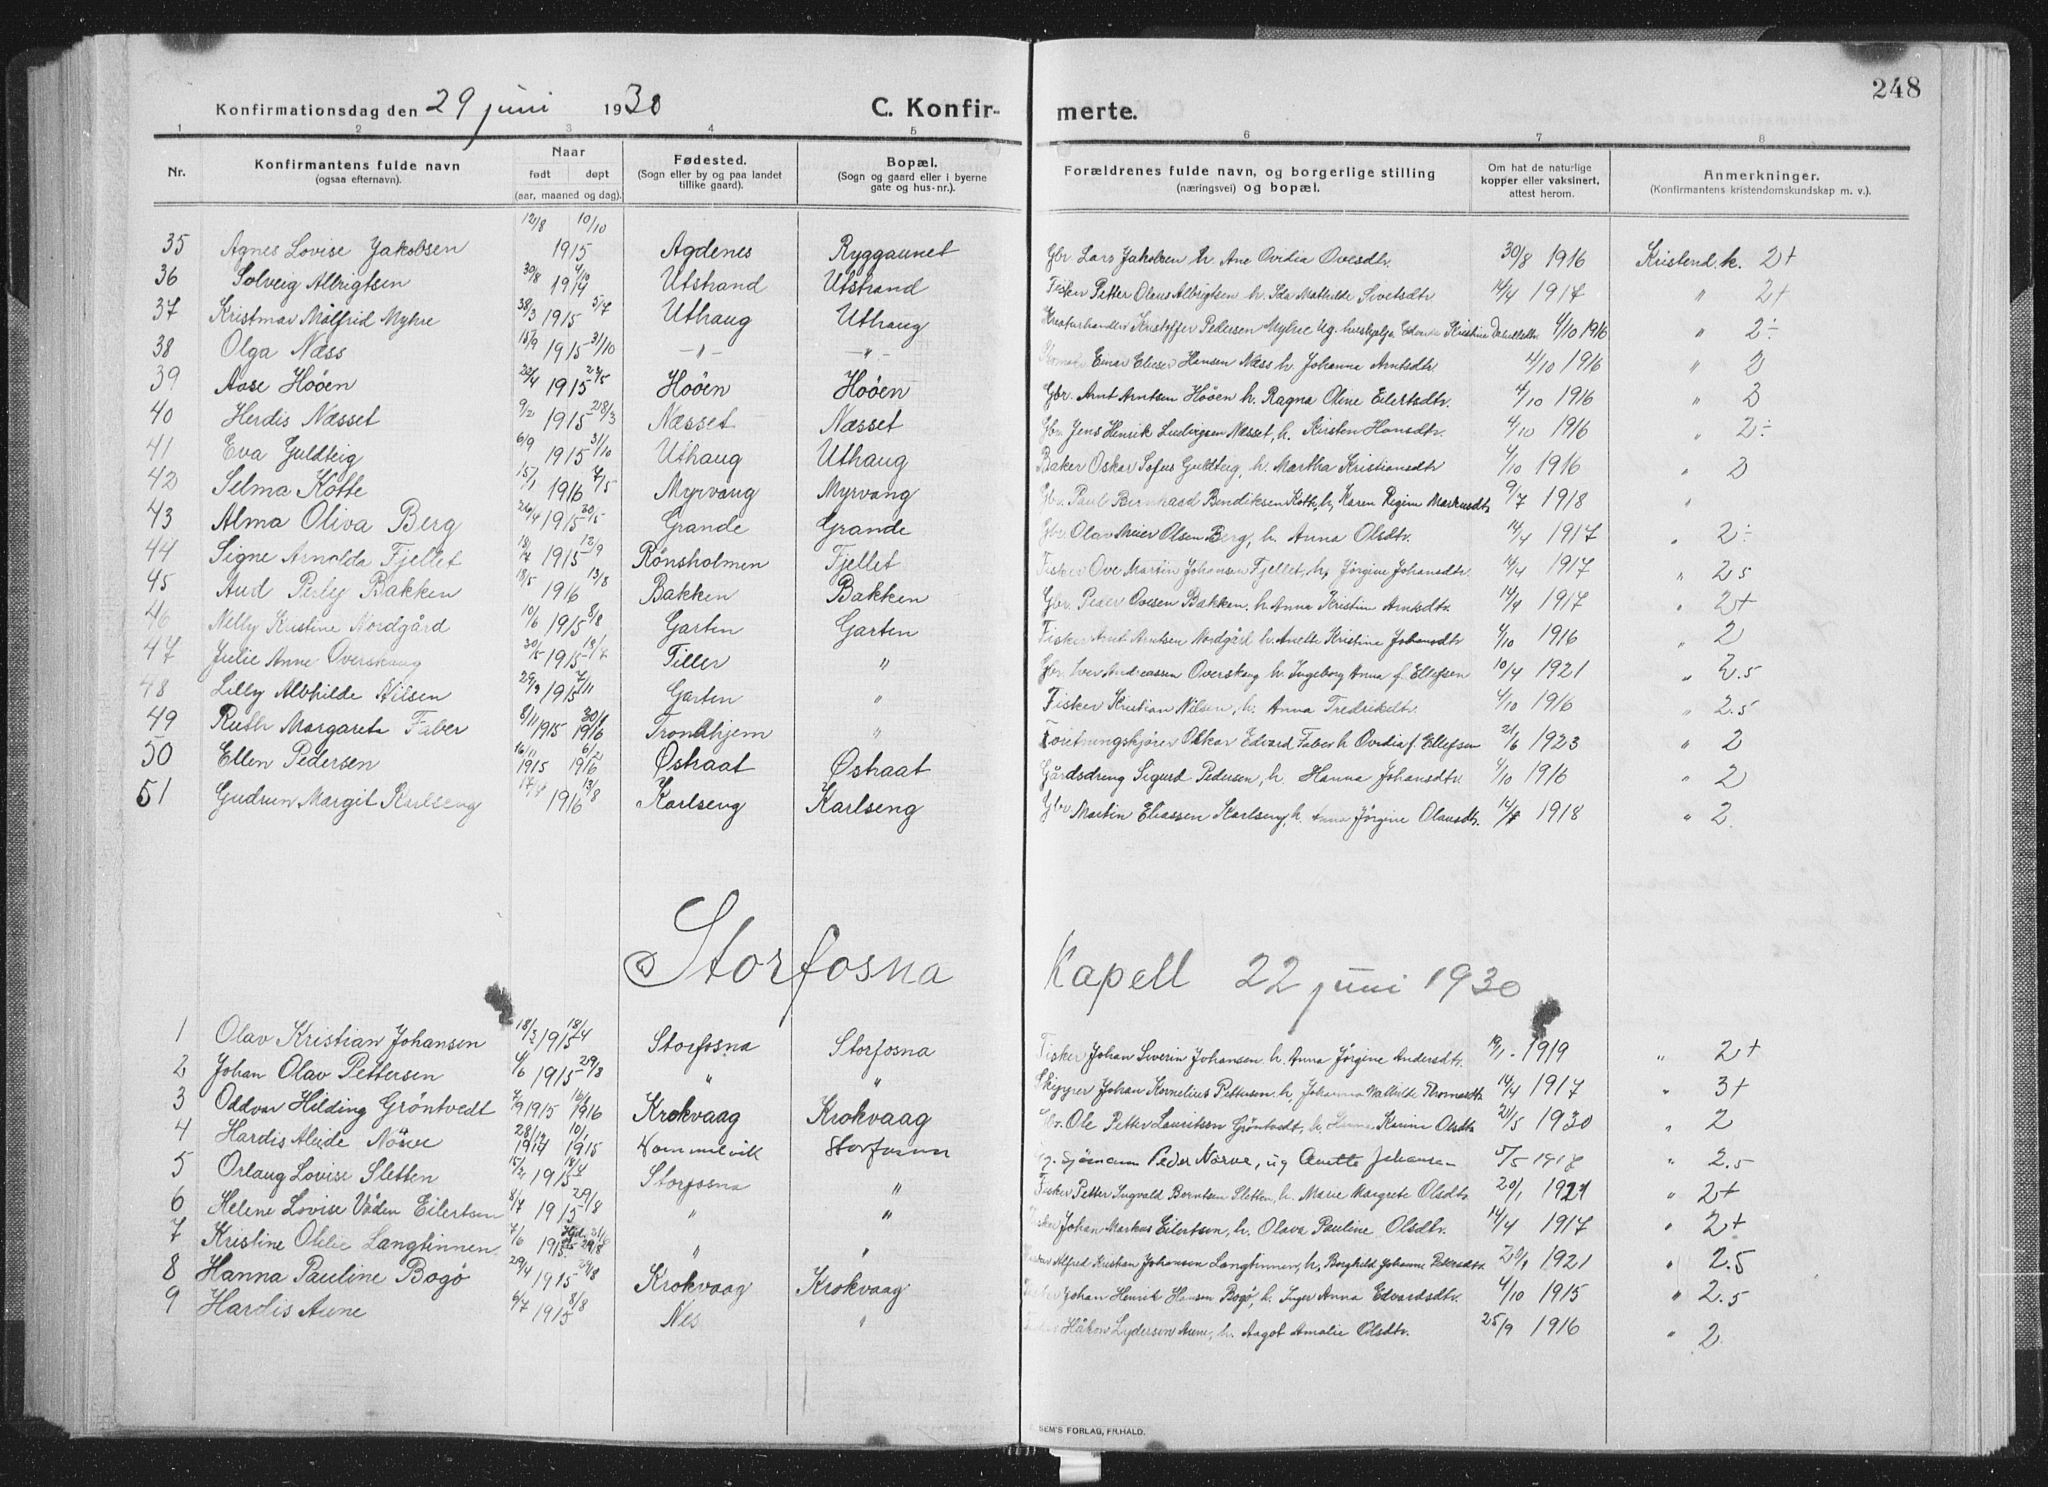 248
Konfirmationsdag den 29 juni 1930 C. Konfir- merte.
1 2 3 4 5 6 7 8
Nr. Konfirmantens fulde navn (ogsaa efternavn). Naar født døpt (aar, maaned og dag). Fødested. (Sogn eller by og paa landet tillike gaard). Bopæl. (Sogn og gaard eller i byerne gate og hus-nr.). Forældrenes fulde navn, og borgerlige stilling (næringsvei) og bopæl. Om hat de naturlige kopper eller vaksinert, attest herom. Anmerkninger. (Konfirmantens kristendomskundskap m. v.).
35 Agnes Lovise Jakobsen 12/8 10/10 1915 Agdenes Ryggaunet Gbr. Lars Jakobsen h. Ane Ovidia Ovesdtr. 30/8 1916 Kristend.k. 2+
36 Solveig Albrigtsen 30/8 4/10 1914 Utstrand Utstrand Fisker Petter Olaus Albrigtsen h. Ida Mathilde Sivetsdtr 14/4 1917 " 2+
37 Kristmar Målfrid Myhre 1915 5/7 Uthaug Uthaug Kristoffer Pedersen Myhre Kristine 4/10 1916 " 2÷
38 Olga Næss 15/9 1915 31/10 -"- -"- Einar Elieser Hansen Næss h. Johanna Arntsdtr 4/10 1916 " 2
39 Aase Hööen 20/4 1915 23/5 Hööen Hööen Gbr. Arnt Arntsen Hööen h. Ragna Oline Eilertsdtr. 4/10 1916 " 3
40 Herdis Næsset 9/2 1915 28/3 Næsset Næsset Gbr. Jens Henrik Ludvigsen Næsset, h. Kirsten Hansdtr. 4/10 1916 " 2÷
41 Eva Guldteig 6/9 1915 31/10 Uthaug Uthaug Baker Oskar Sofus Guldteig, h. Martha Kristiansdtr 4/10 1916 " 2
42 Selma Kotte 15/1 1916 7/5 Myrvang Myrvang Gbr. Paul Bernhaad Bendiksen Kotte, h. Karen Regine Markusdtr 9/7 1918 "
43 Alma Oliva Berg 26/4 1915 30/5 Grande Grande Gbr. Olav Meier Olsen Berg, h. Anna Olsdtr. 14/4 1917 " 2÷
44 Signe Arnolda Fjellet 18/7 1915 12/9 Rönsholmen Fjellet Fisker Ove Martin Johansen Fjellet, h. Jörgine Johansdtr. 14/4 1917 " 2,5
45 Aud Perly Bakken 18/5 1916 13/8 Bakken Bakken Gbr. Peder Ovesen Bakken, h. Anna Kristine Arntsdtr. 14/4 1917 " 2+
46 Nelly Kristine Nordgård 10/6 1915 8/8 Garten Garten Fisker Arnt Arntsen Nordgård h. Anette Kristine Johansdtr 4/10 1916 " 2
47 Julie Anne Overskaug 30/5 1915 18/7 Tiller " Gbr. Iver Andreassen Overskaug h. Ingeborg Anna f. Ellefsen 10/4 1921 " 2.5
48 Lilly Alvhilde Nilsen 29/9 1915 7/11 Garten " Fisker Kristian Nilsen, h. Anna Fredriksdtr. 4/10 1916 " 2.5
49 Ruth Margareta Faber 8/11 1915 30/1 1916 Trondhjem " Forretningskjörer Edvard Faber h. Ovidia f. Ellefsen 21/6 1923 " 2
50 Ellen Pedersen 16/11 1915 6/2 1916 Östraat Östraat Gårdsdreng Sigurd Pedersen, h. Hanna Johansdtr. 4/10 1916 " 2
51 Gudrun Margit Karlseng 1916 13/8 Karlseng Karlseng Gbr Martin Eliassen Karlseng, h. Anna Jörgine Olausdtr. 1918 " 2
Storfosna Kapell 22 juni 1930
1 Olav Kristian Johansen 18/3 1915 18/4 Storfosna Storfosna Fisker Johan Siverin Johansen h. Anna Jörgine Andersdtr. 19/1 1919 " 2+
2 Johan Olav Pettersen 1915 29/3 " " Skipper Johan Kornelius Pettersen h. Johanna Mathilde Thomasdtr 14/4 1917 " 3+
3 Oddvar Hilding Gröntvedt 7/9 1915 16/1 1916 Krokvaag Krokvaag Gbr. Ole Petter Lauritsen Gröntvedt, h. Hanna Karine Olsdtr 21/5 1930 " 2
4 Hardis Alvide Nörve 28/12 1914 10/1 1915 Hommelvik Storfosna Sjömann Peder Nörve, ug Anette Johansen 5/5 1917 " 2.5
5 Orlaug Lovise Sletten 15/2 1915 18/4 Storfosna " Fisker Petter Ingvald Berntsen Sletten, h. Marie Margrete Olsdtr. 20/1 1921 " 2+
6 Helene Lovise Våden Eilertsen 8/7 1915 29/8 " " Fisker Johan Markus Eilertsen, h. Olava Pauline Olsdtr. 14/4 1917 " 2+
7 Kristine Otelie Langtinnen 7/6 1915 29/8 " " Alfred Kristian Johansen Langtinnen, h. Borghild Johanne Petersdtr. 20/1 1921 " 2.5
8 Hanna Pauline Bogö 29/4 1915 29/8 Krokvaag Krokvaag Fisker Johan Henrik Hansen Bogö, h. Inger Anna Edvardsdtr. 4/10 1915 " 2.5
9 Hardis Aune 6/7 1915 8/8 Nes " Håkon Lydersen Aune, h. Aagot Amalie Olsdtr. 25/9 1916 " 2
SEM'S FORLAG, FR.HALD.